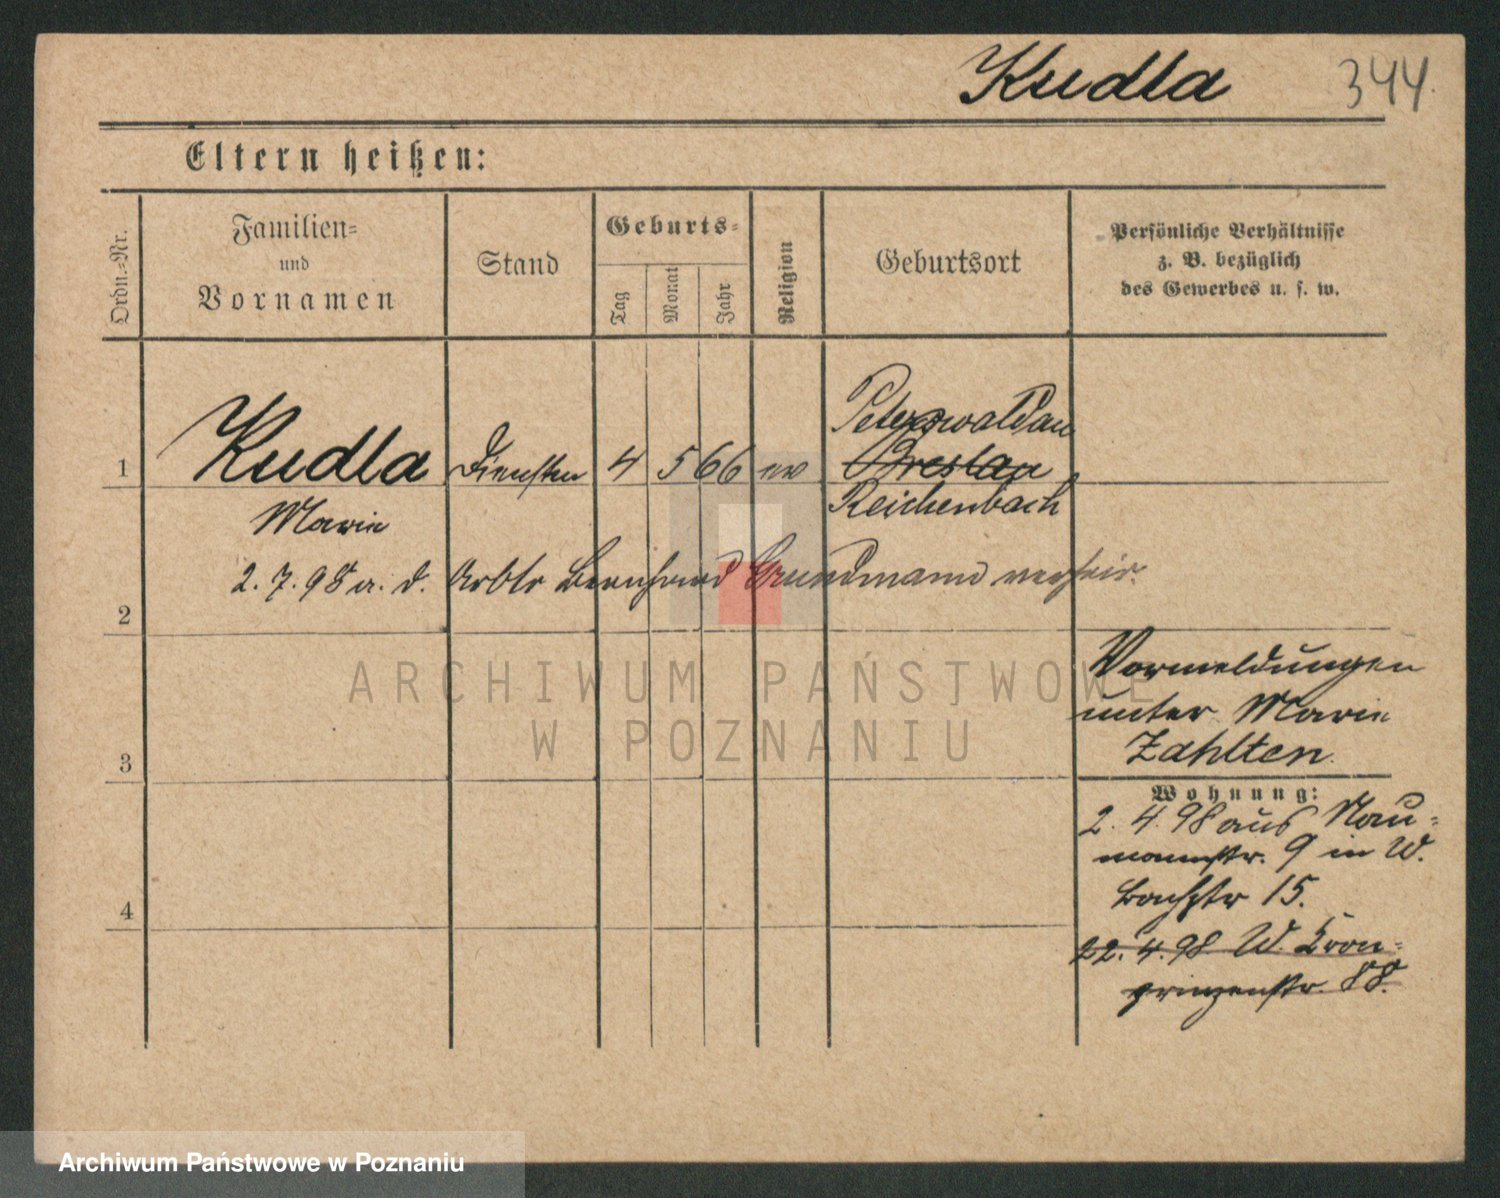 Kudla 344.
Eltern heißen:
Ordn.-Nr.
Familien-
und
Vornamen
Stand
Geburts-
Tag
Monat
Jahr
Religion
Geburtsort
Persönliche Verhältnisse
z. B. bezüglich
des Gewerbes u. s. w.
Peterswaldau
1 Kudla 4 5 66 ev Breslau
Marie Reichenbach
2. 7. 98 a. d. Arbtr Bernhard Grundmann verheir.
2
Vormeldungen
unter Marie
3 Zahlten.
Wohnung:
2. 4. 98 aus Nau-
mannstr. 9 in W.
Bachstr 15.
4
22. 4. 98 W. Kron-
prinzenstr. 88.
ARCHIWUM PAŃSTWOWE
W POZNANIU
Archiwum Państwowe w Poznaniu